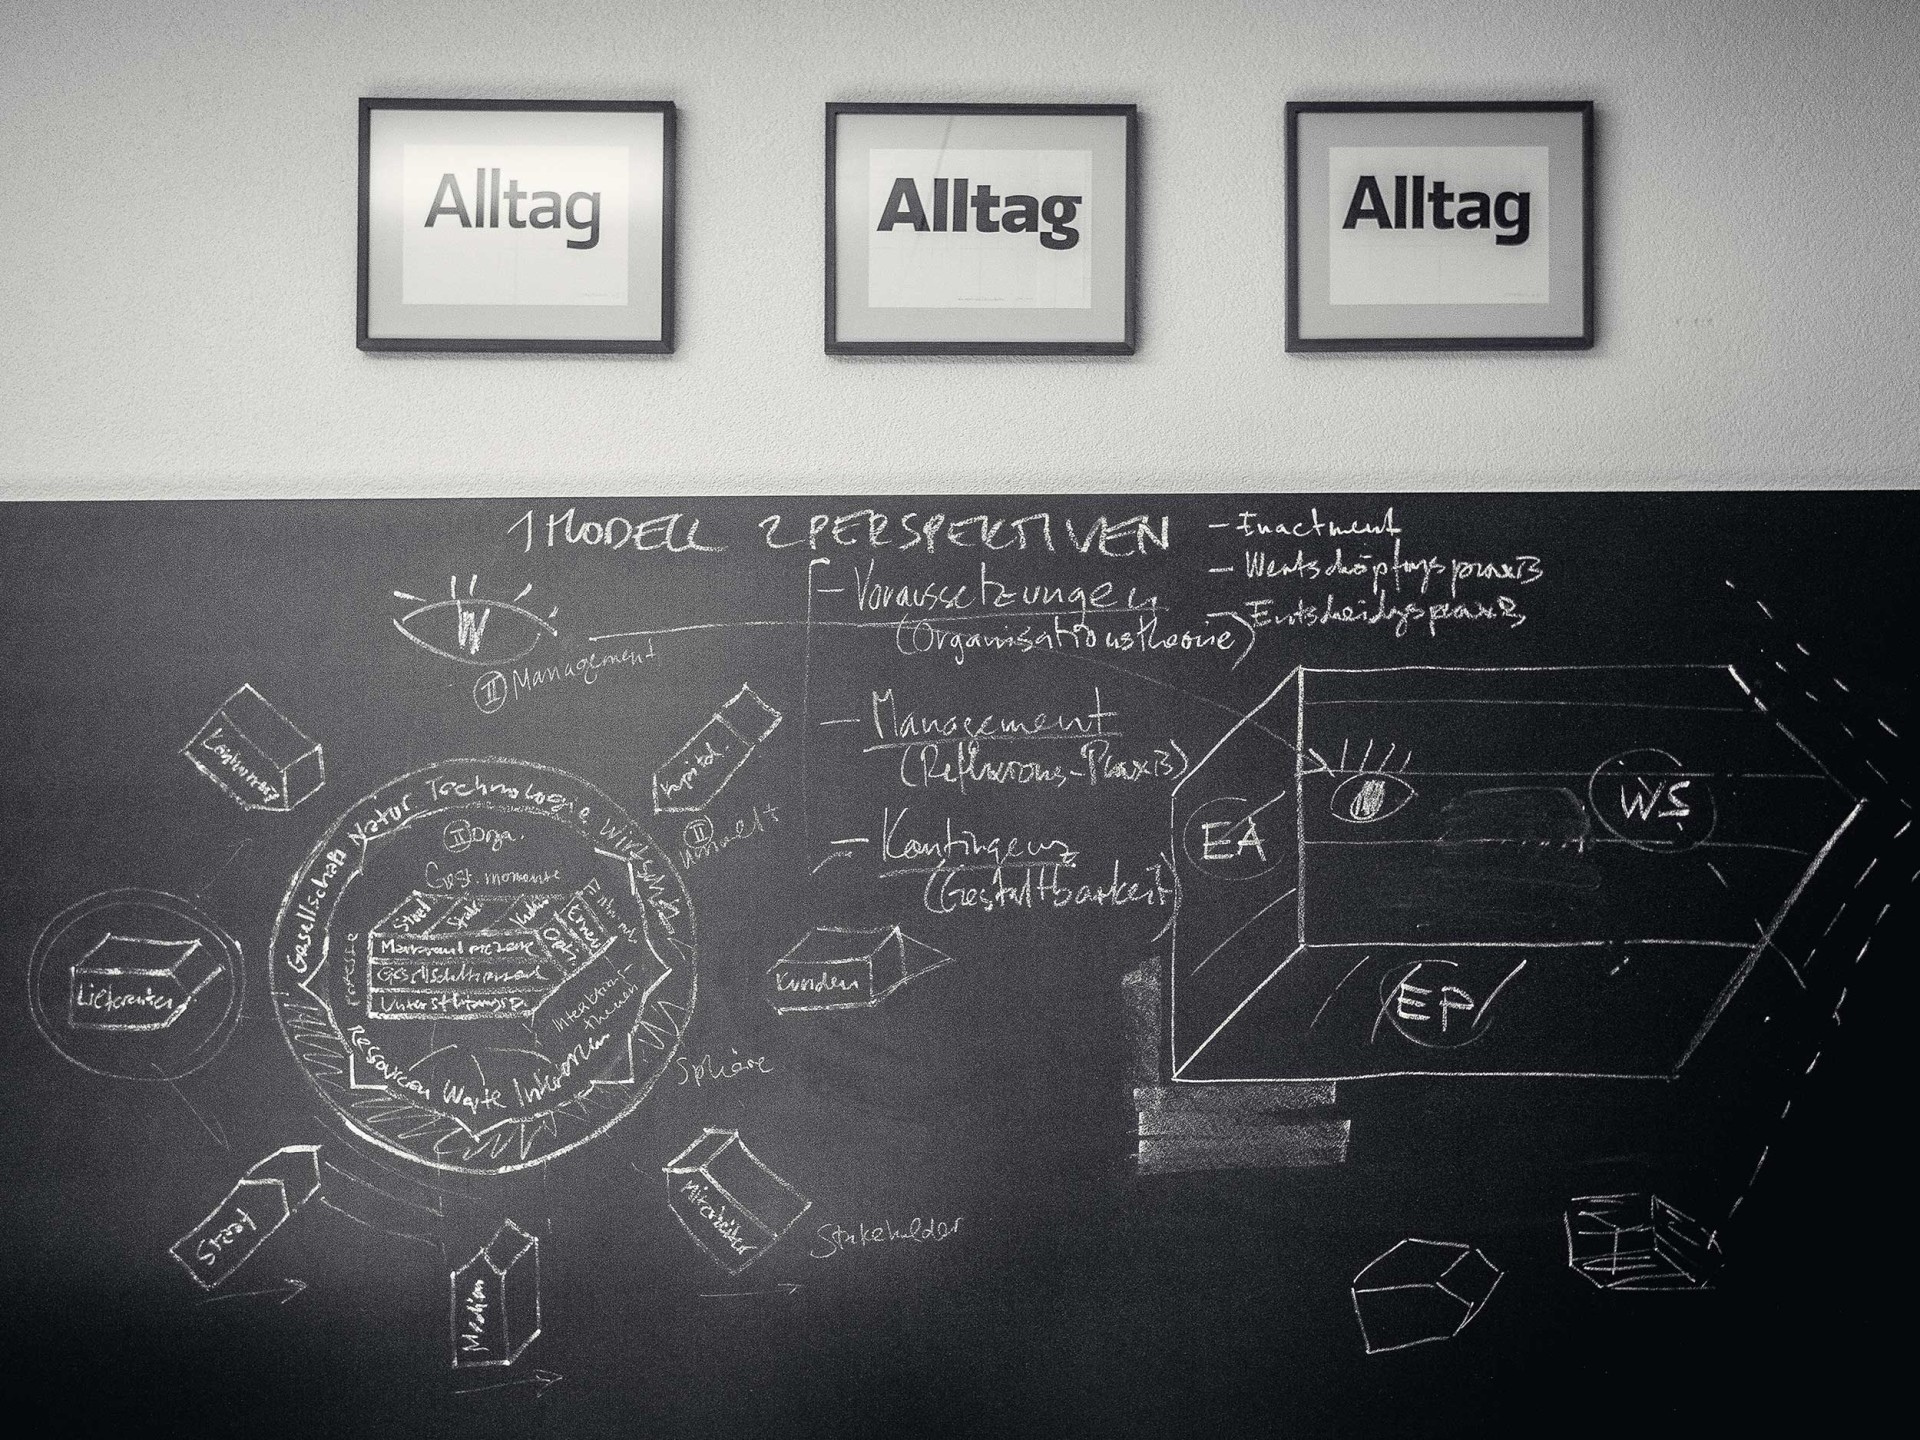 Alltag
Alltag
Alltag
1 MODELL 2 PERSPEKTIVEN
- Inactment
- WertschöpfngspraxiS
- EntscheidgspraxiS
- Voraussetzungen
(Organisationstheorie)
W
II Management
- Management
(Reflexions-PraxiS)
- Kontingenz
(Gestaltbarkeit)
Kapital.
II Umwelt
Gesellschaft Natur Technologie Wirtschaft
II Orga.
Gest. momente
Managementprozesse
Geschäftsprozesse
Unterstützungsp.
Prozesse
Interaktions
themen
Ressourcen Werte Interessen
Lieferanten
Kunden
Sphäre
Staat
Medien
Mitarbeiter
Stakeholder
EA
WS
EP